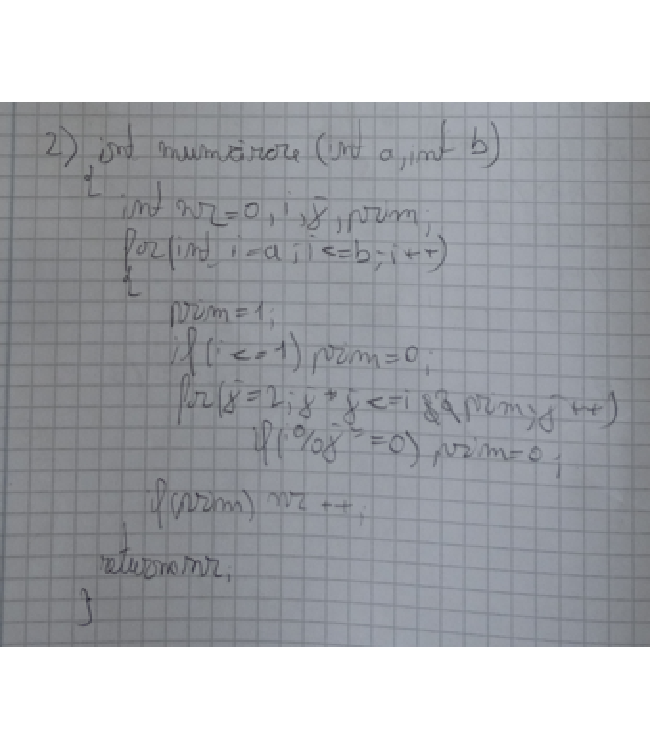 2) int numărare (int a, int b)
{
int nr=0, i, j, prim;
for(int i=a; i<=b; i++)
{
prim=1;
if(i<=1) prim=0;
for(j=2; j*j<=i && prim; j++)
if(i%j==0) prim=0;
if(prim) nr++;
}
return nr;
}